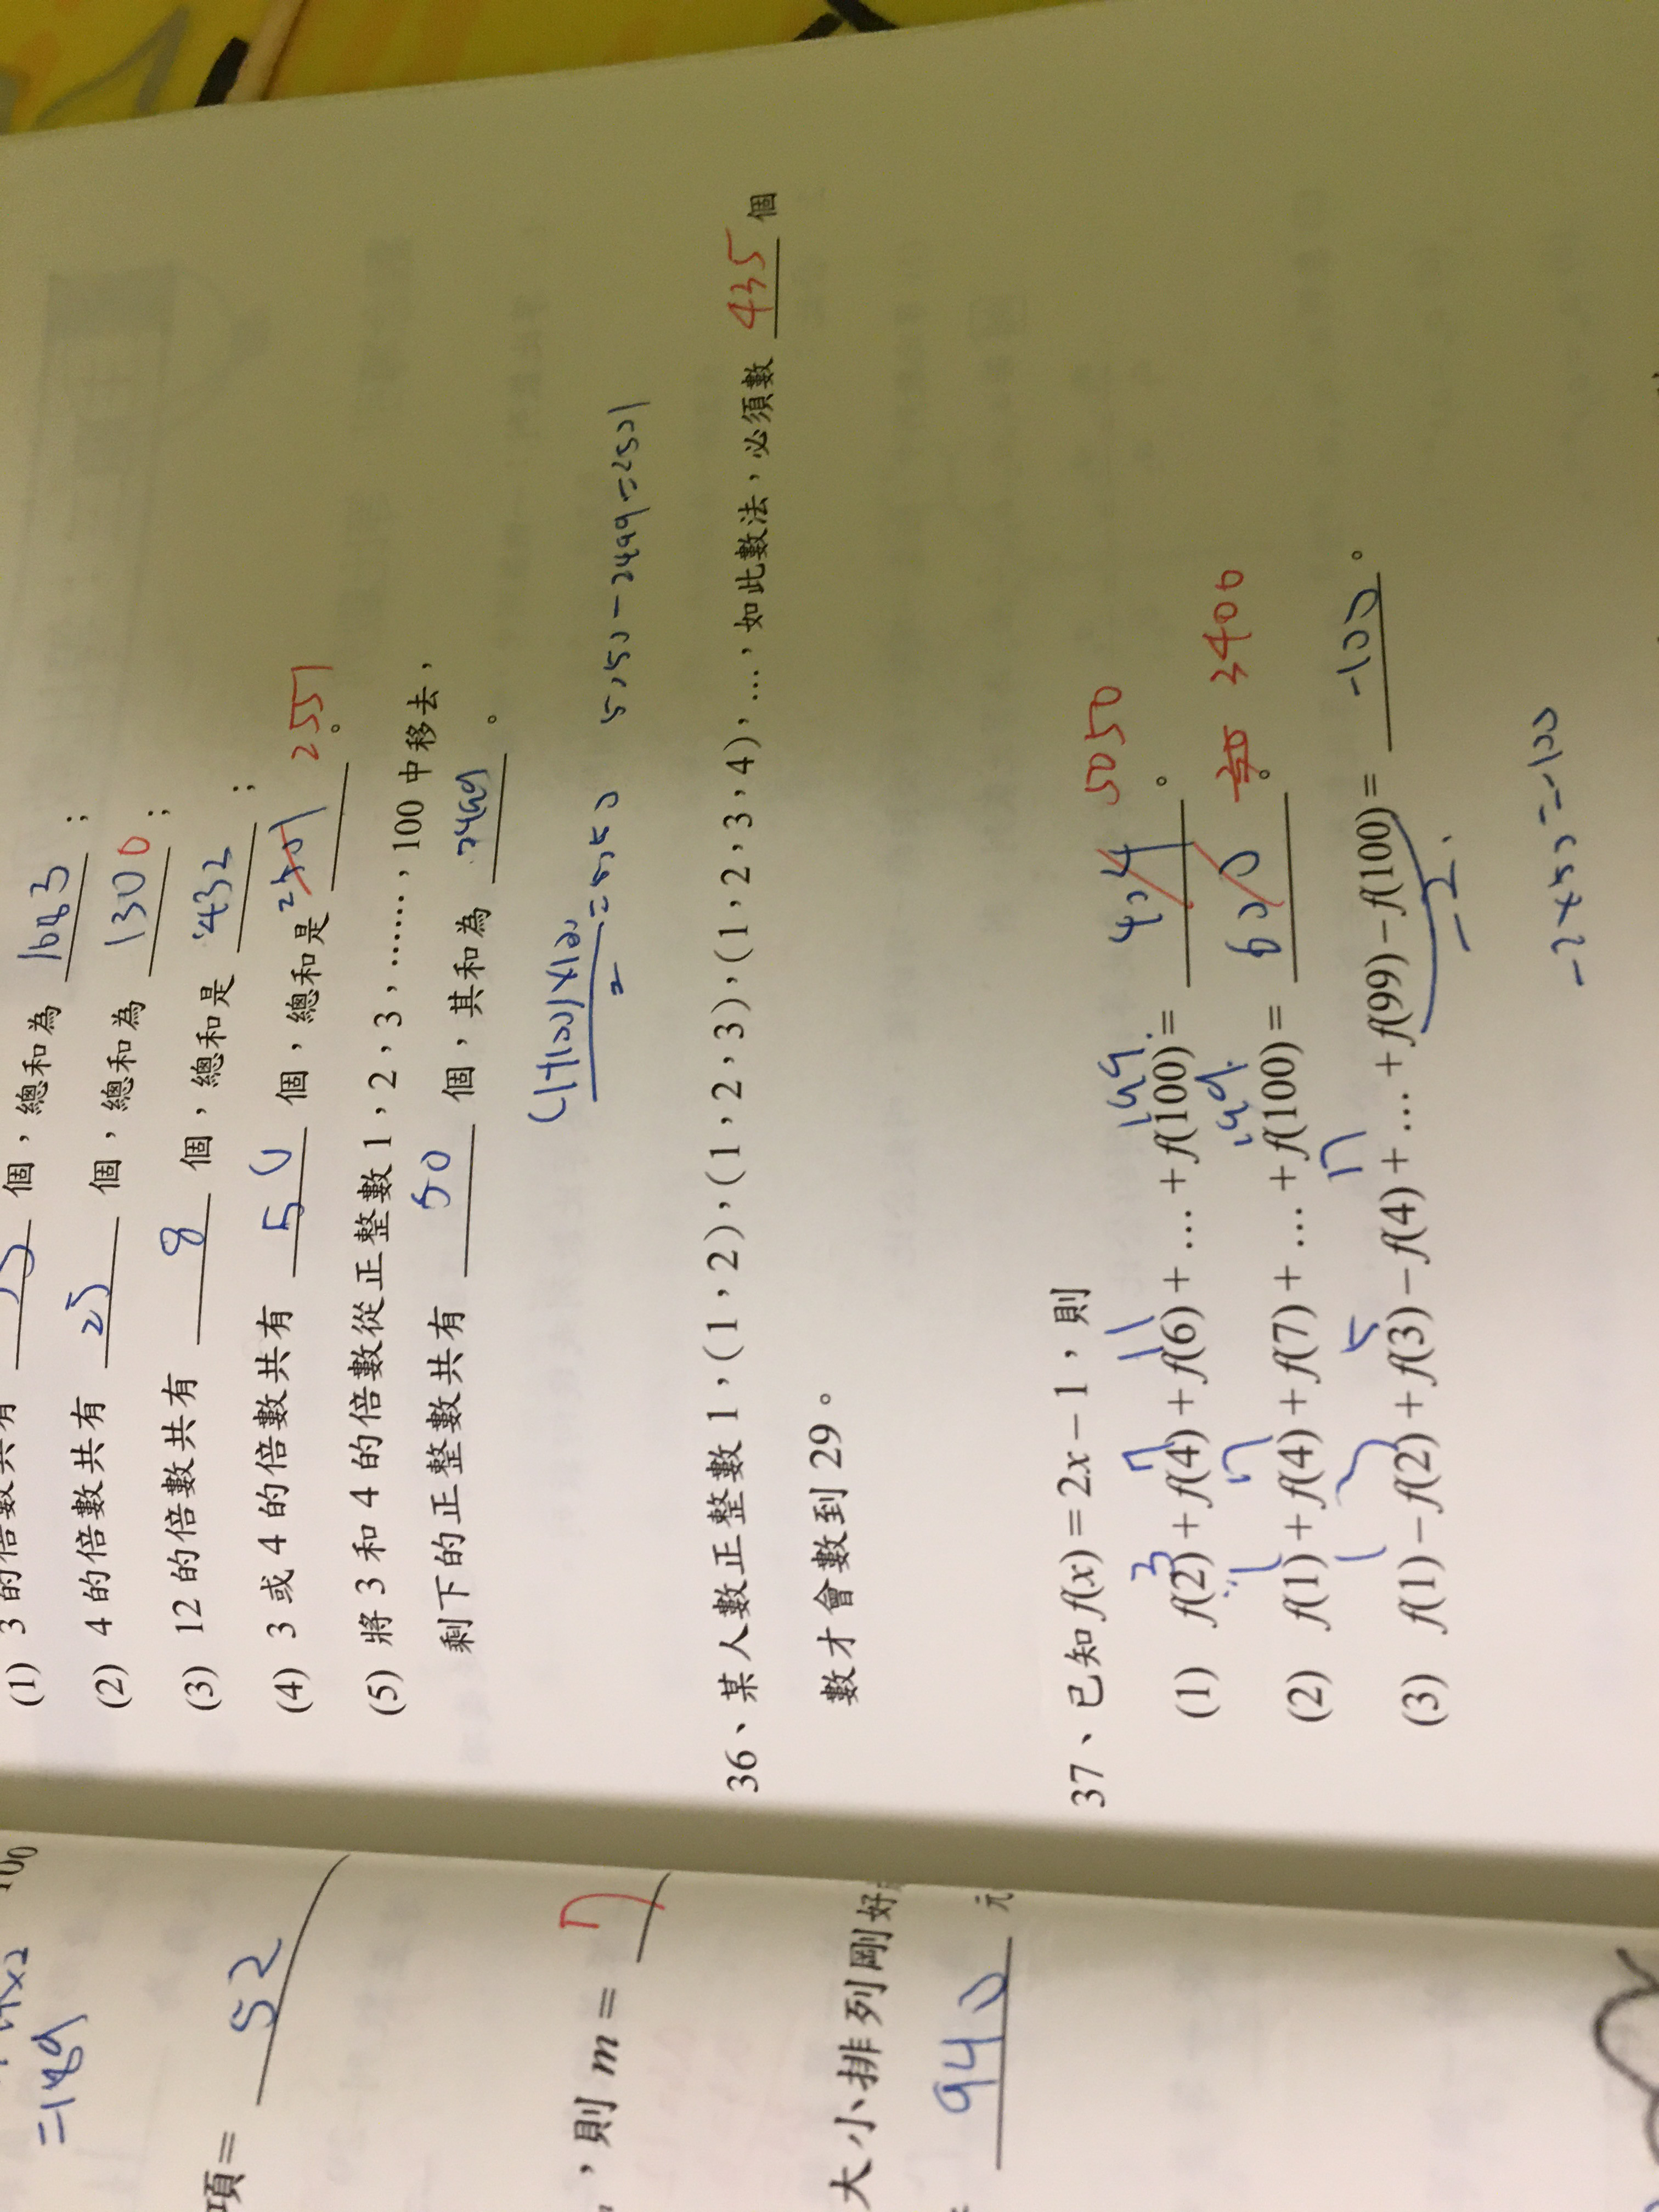 (1) 3 的倍數共有 個，總和為 1683 ；
(2) 4 的倍數共有 25 個，總和為 1300 ；
(3) 12 的倍數共有 8 個，總和是 432 ；
(4) 3 或 4 的倍數共有 50 個，總和是 2501 2551 。
(5) 將 3 和 4 的倍數從正整數 1，2，3，……，100 中移去，
剩下的正整數共有 50 個，其和為 2499 。
(1+100)×100
2
=5050 5050-2499=2501
36、某人數正整數 1，(1，2)，(1，2，3)，(1，2，3，4)，…，如此數法，必須數 435 個
數才會數到 29。
37、已知 f(x)=2x-1，則
3 7 11 199
(1) f(2)+f(4)+f(6)+…+f(100)= 404 。 5050
1 7 199
(2) f(1)+f(4)+f(7)+…+f(100)= 600 。 3400
1 3 5 7
(3) f(1)-f(2)+f(3)-f(4)+…+f(99)-f(100)= -100 。
-2
-2×50=-100
100
=149
項= 52
，則 m= 7
大小排列剛好
940 元